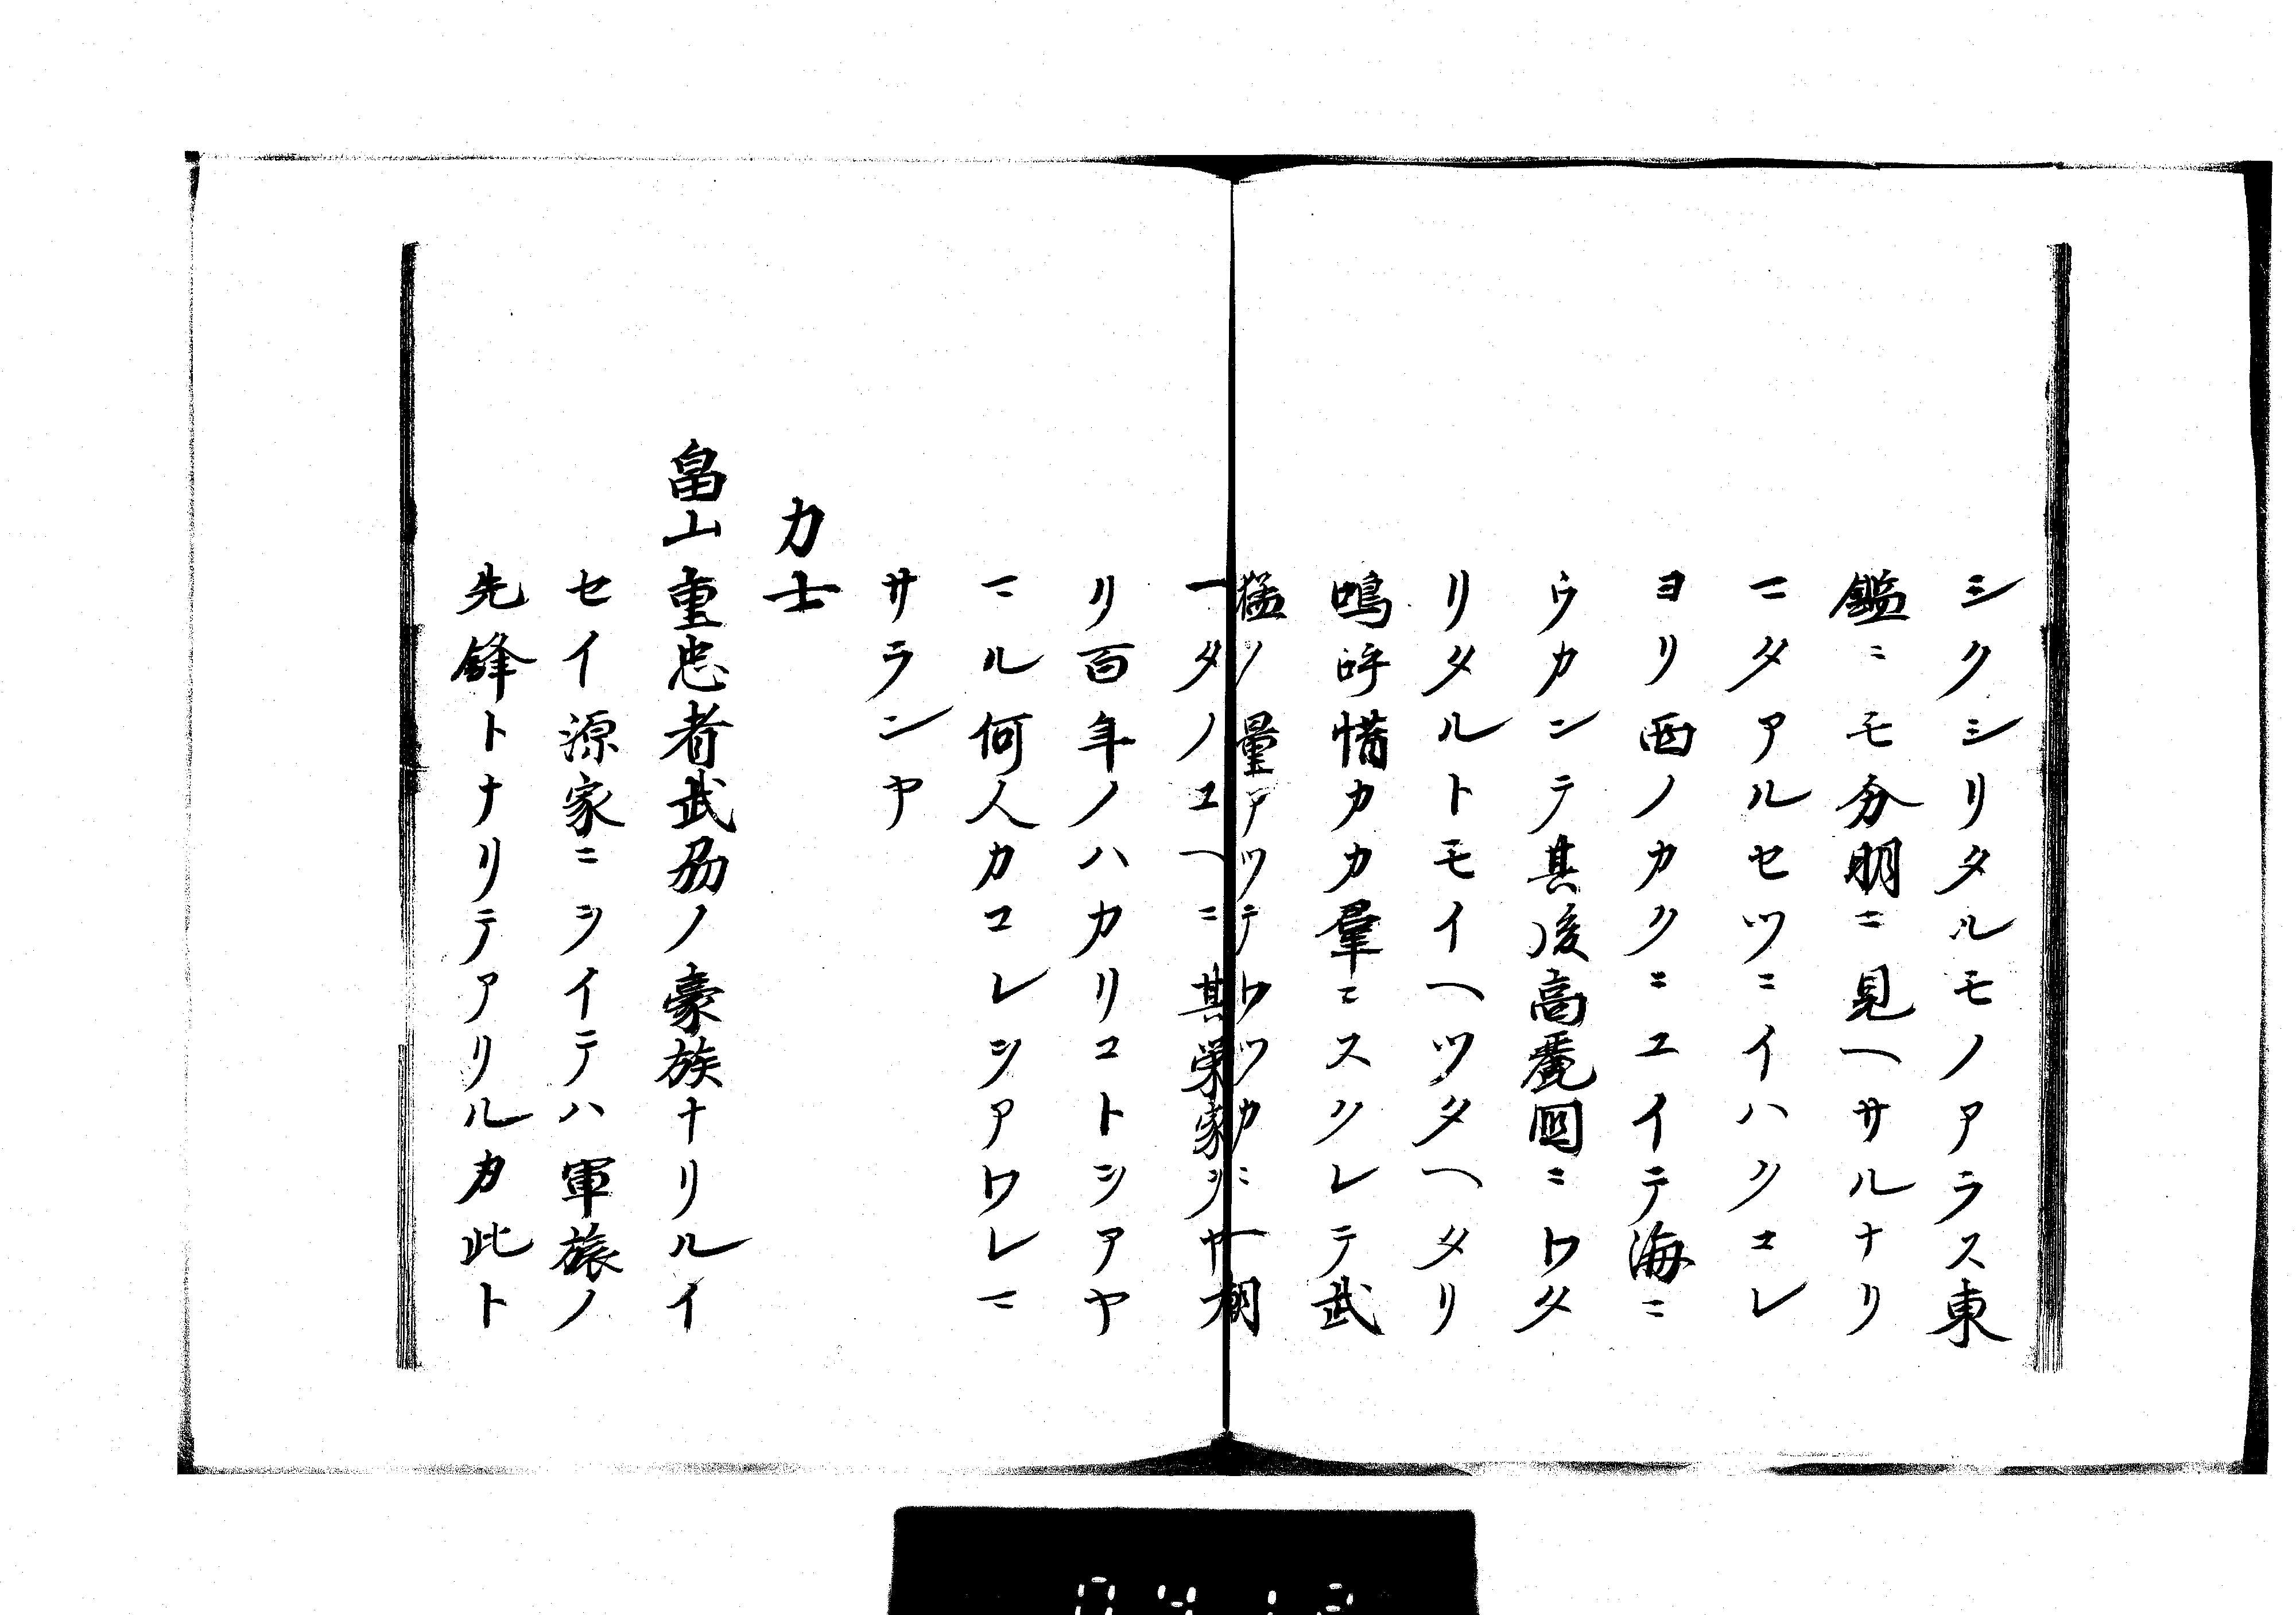 シクシリタルモノアラス東
鑑ニモ分明ニ見ヘサルナリ
ニタアルセツニイハクコレ
ヨリ西ノカタニユイテ海ニ
ウカンテ其後高麗国ニワタ
リタルトモイヘツタヘタリ
嗚呼惜カカ羣ニスクレテ武
猛ノ量アツテワツカニ一朝
一タノユヘニ其栄家シヤ
リ百年ノハカリコトシアヤ
ニル何人カコレシアワレニ
サランヤ
力士
畠山重忠者武刕ノ豪族ナリルイ
セイ源家ニシイテハ軍旅ノ
先鋒トナリテアリルカ此ト